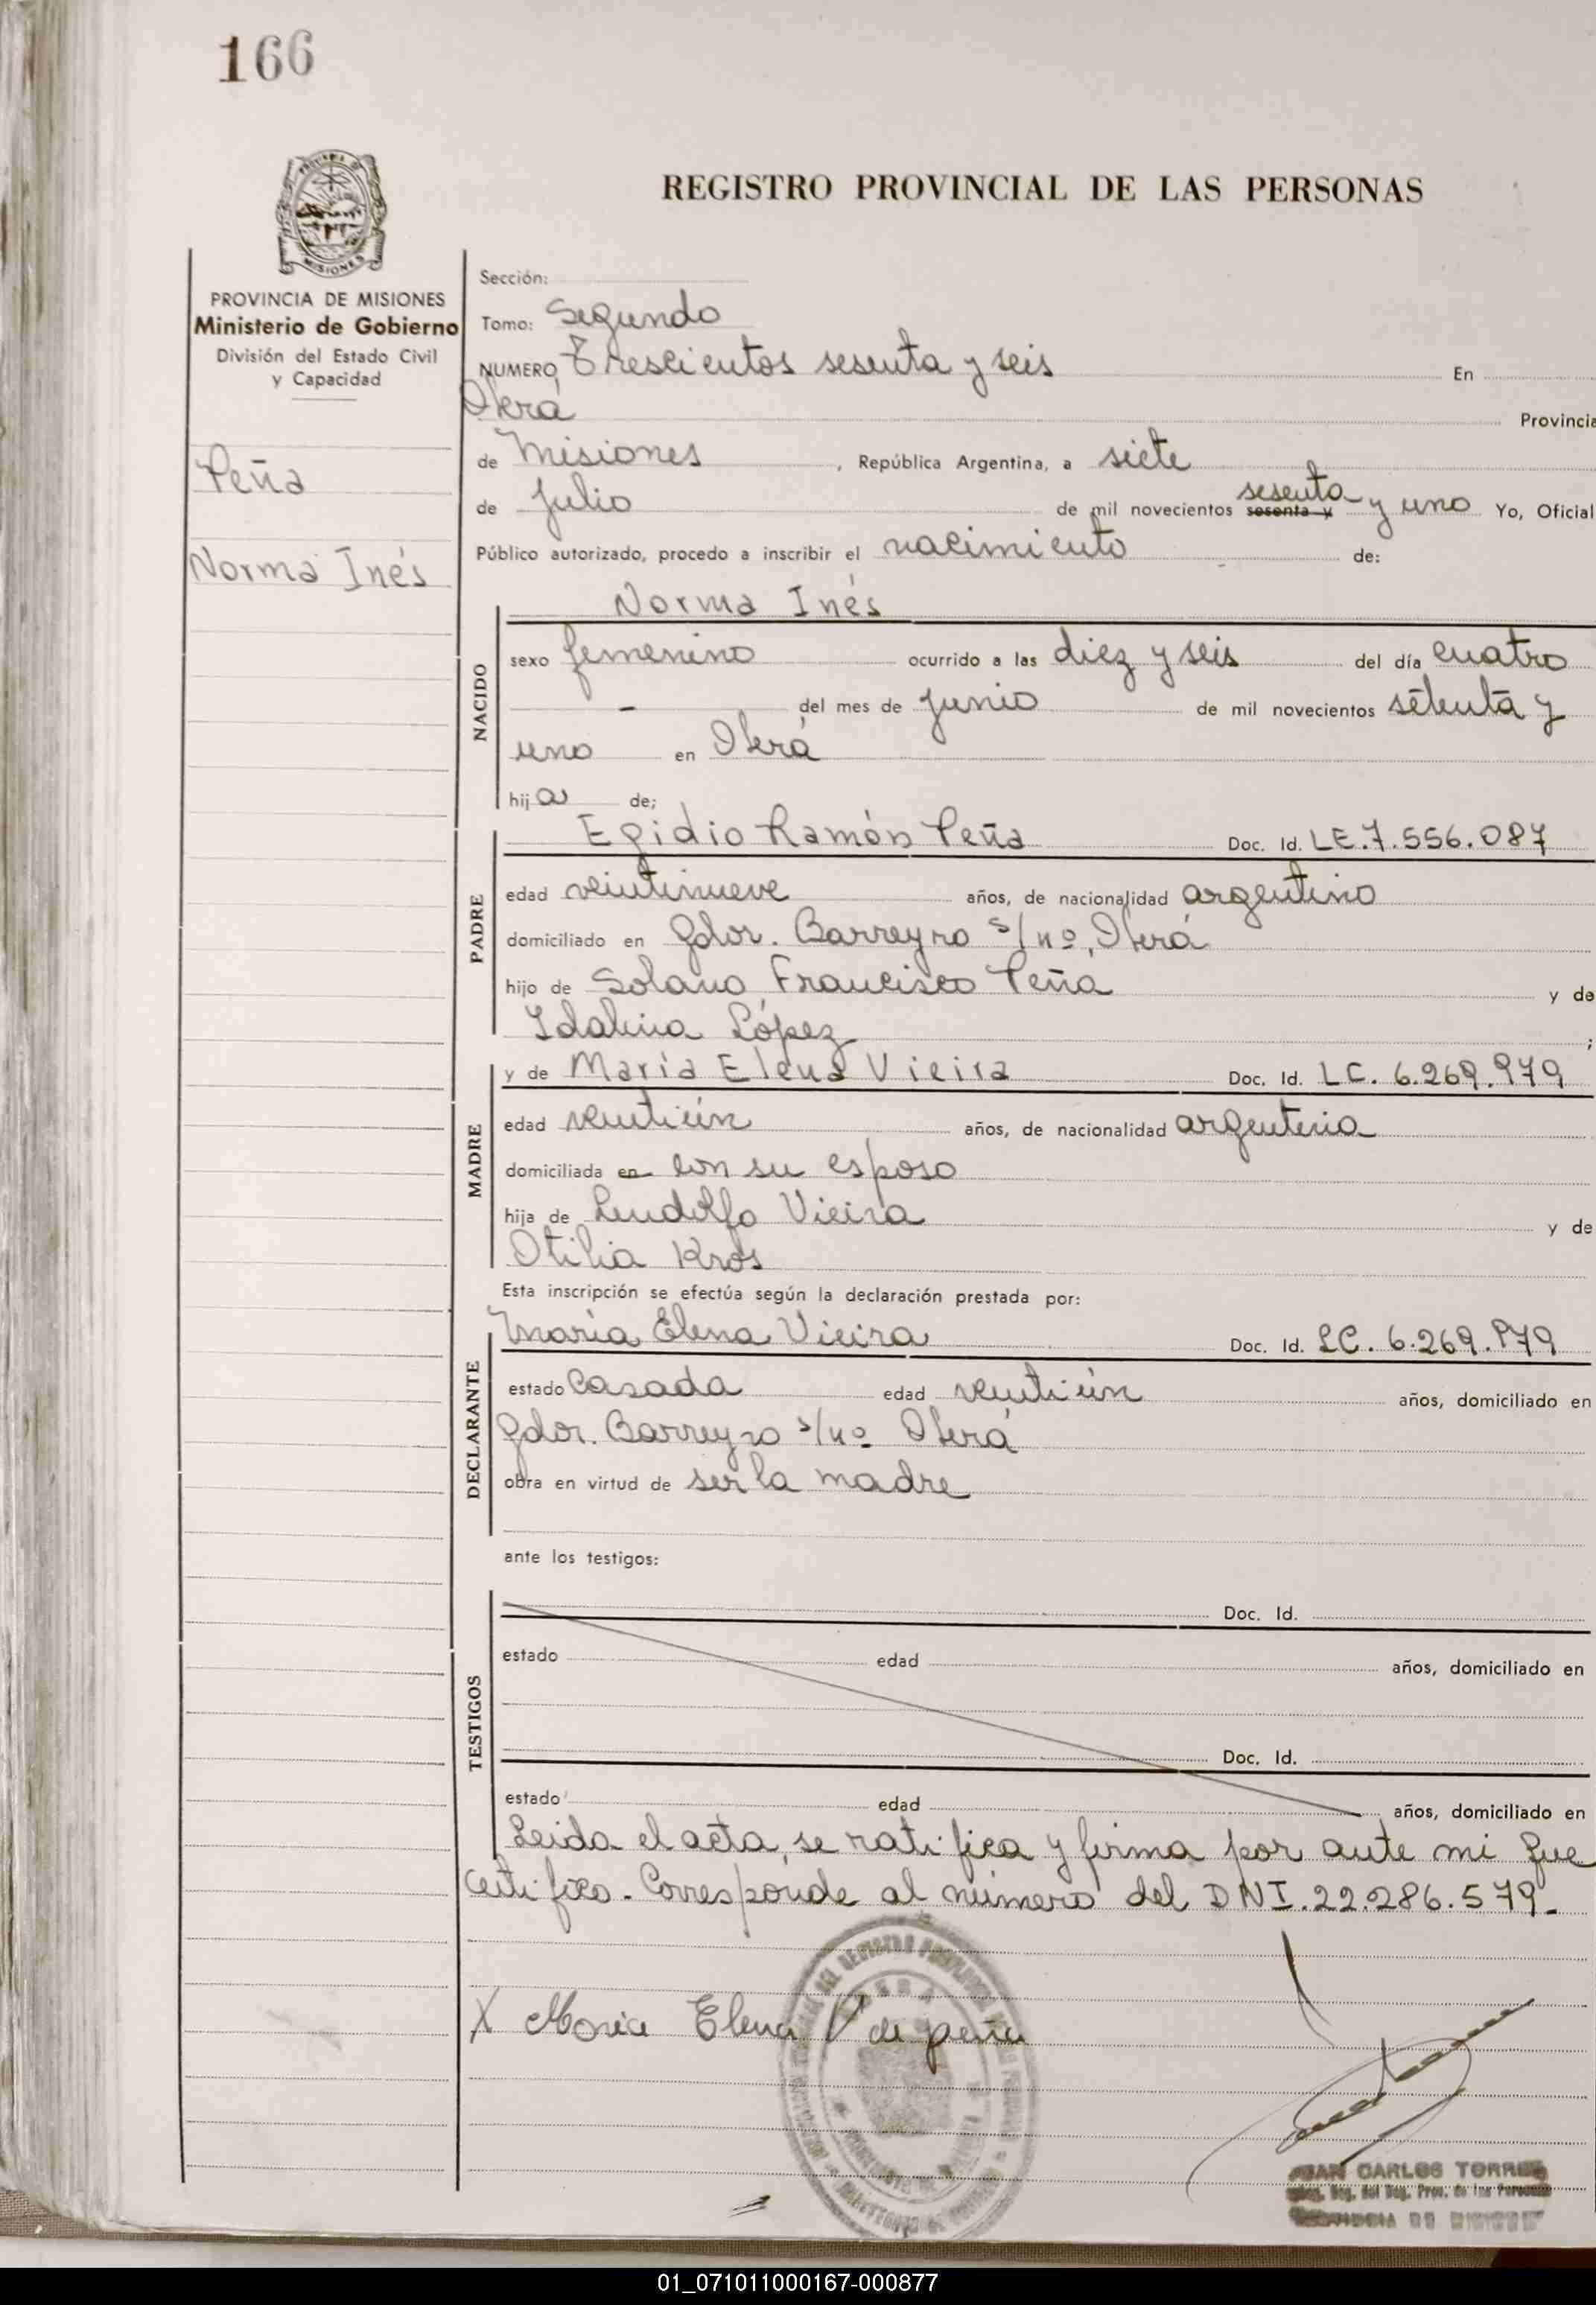 166
REGISTRO PROVINCIAL DE LAS PERSONAS
MISIONES
PROVINCIA DE MISIONES
Ministerio de Gobierno
División del Estado Civil
y Capacidad
Peña
Norma Inés
Sección:
Tomo: Segundo
NUMERO Trescientos sesenta y seis En
Oberá Provincia
de Misiones, República Argentina, a siete
de Julio de mil novecientos sesenta y sesenta y uno Yo, Oficial
Público autorizado, procedo a inscribir el nacimiento de:
NACIDO
Norma Inés
sexo femenino ocurrido a las diez y seis del día cuatro
- del mes de junio de mil novecientos setenta y
uno en Oberá
hija de;
PADRE
Egidio Ramón Peña Doc. Id. LE.7.556.087
edad veintinueve años, de nacionalidad argentino
domiciliado en Gdor. Barreyro s/nº, Oberá
hijo de Solano Francisco Peña y de
Idalina López ;
MADRE
y de María Elena Vieira Doc. Id. LC. 6.269.979
edad veintiún años, de nacionalidad argentina
domiciliada en con su esposo
hija de Lindolfo Vieira y de
Otilia Kros
Esta inscripción se efectúa según la declaración prestada por:
DECLARANTE
María Elena Vieira Doc. Id. LC. 6.269.979
estado Casada edad veintiún años, domiciliado en
Gdor. Barreyro s/nº Oberá
obra en virtud de ser la madre
ante los testigos:
TESTIGOS
Doc. Id.
estado edad años, domiciliado en
Doc. Id.
estado edad años, domiciliado en
Leida el acta, se ratifica y firma por ante mi que
certifico. Corresponde al número del DNI.22.286.579.-
X Maria Elena V de peña
JUAN CARLOS TORRES
01_071011000167-000877